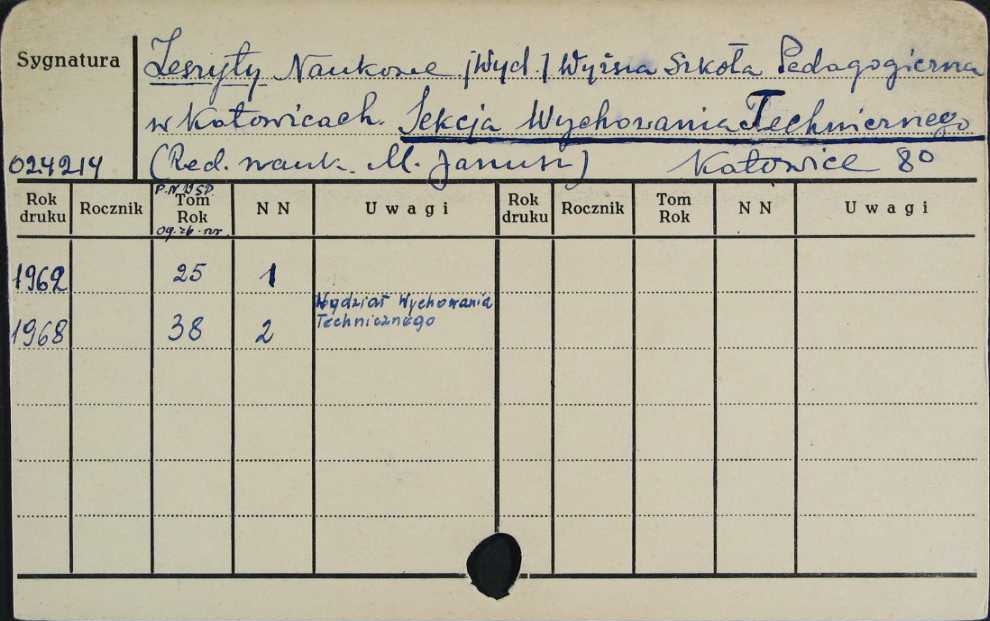 Sygnatura
Zeszyty Naukowe /Wyd./ Wyższa Szkoła Pedagogiczna
w Katowicach. Sekcja Wychowania Technicznego
024214 (Red. nauk. M. Janusz) Katowice 8°
Rok druku Rocznik Tom Rok NN Uwagi Rok druku Rocznik Tom Rok NN Uwagi
og. zb. nr
1962 25 1
Wydział Wychowania
1968 38 2 Technicznego